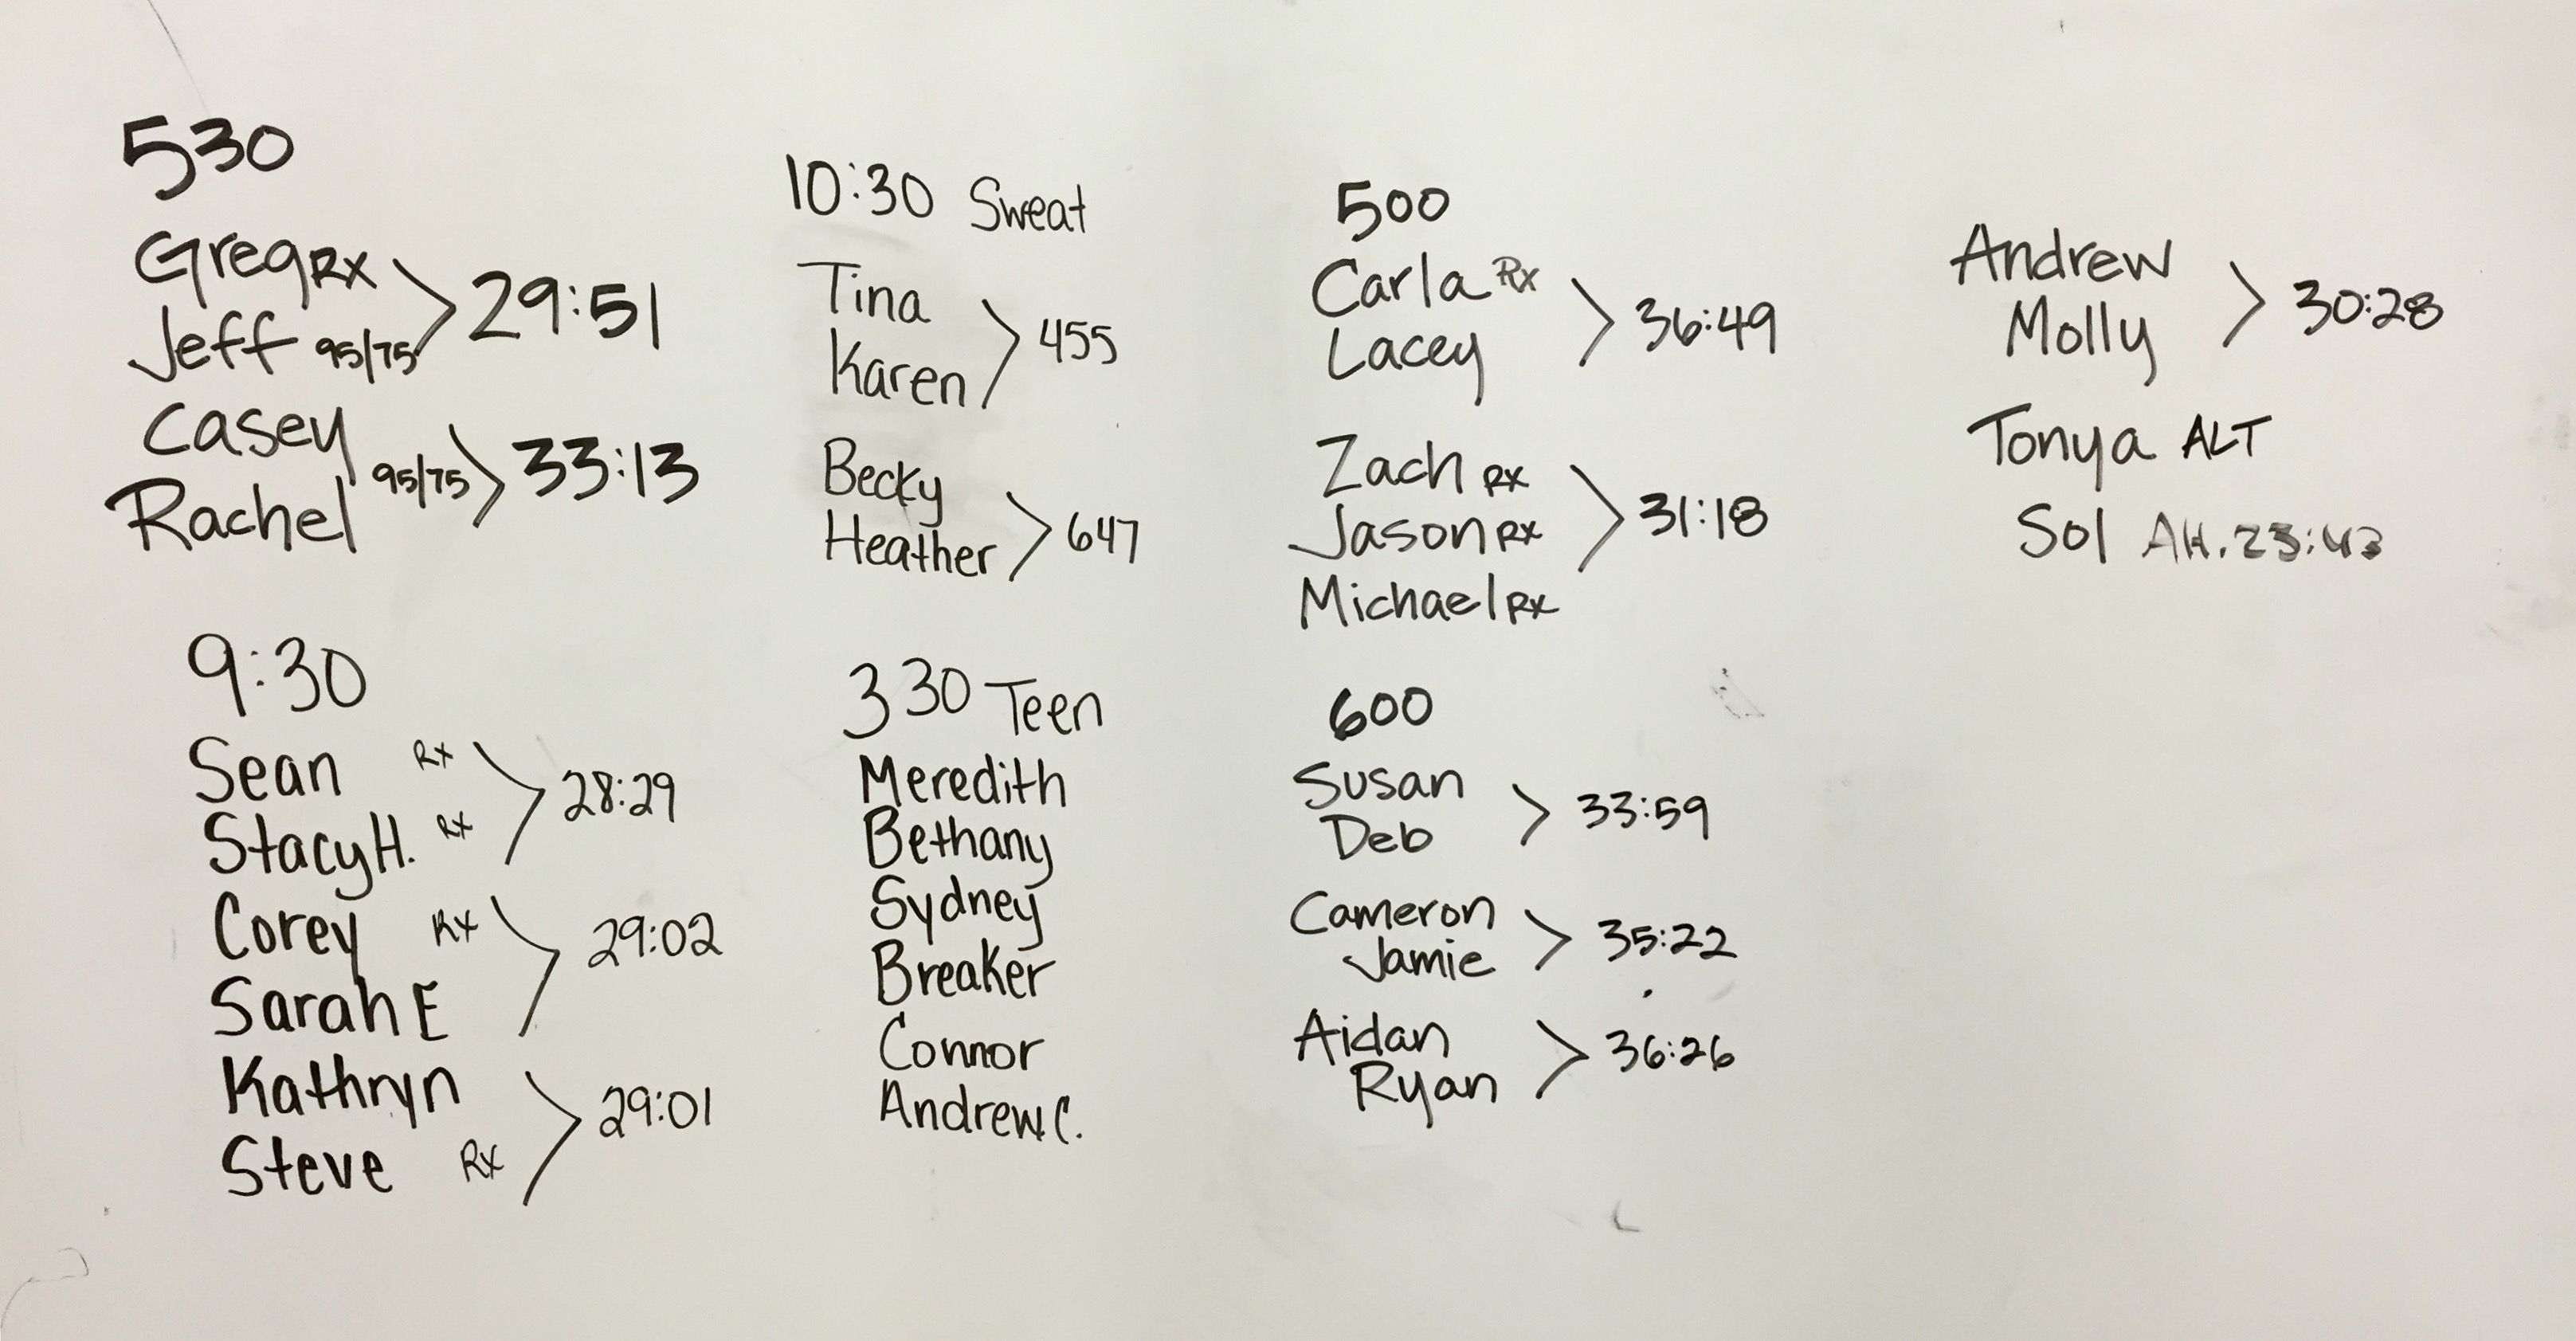 530
Greg RX
Jeff 95/75
29:51
Casey
Rachel 95/75
33:13
9:30
Sean Rx
Stacy H. Rx
28:29
Corey Rx
Sarah E
29:02
Kathryn
Steve Rx
29:01
10:30 Sweat
Tina
Karen
455
Becky
Heather
647
330 Teen
Meredith
Bethany
Sydney
Breaker
Connor
Andrew C.
500
Carla Rx
Lacey
36:49
Zach RX
Jason RX
Michael RX
31:18
600
Susan
Deb
33:59
Cameron
Jamie
35:22
Aidan
Ryan
36:26
Andrew
Molly
30:28
Tonya ALT
Sol